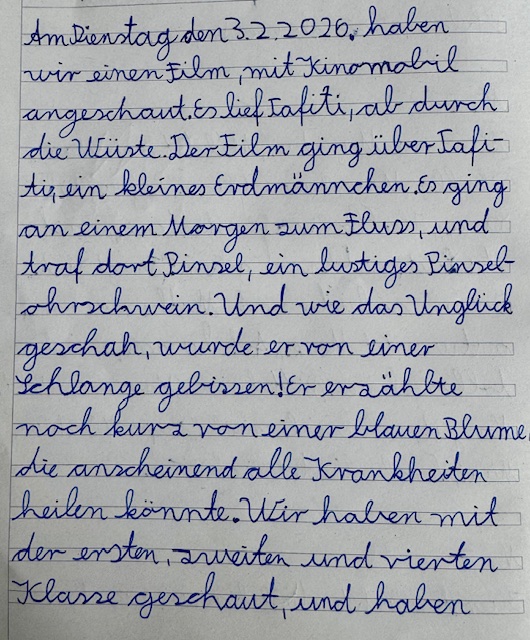 Am Dienstag den 3.2.2026, haben
wir einen Film, mit Kinomobil
angeschaut. Es lief Tafiti, ab durch
die Wüste. Der Film ging über Tafi-
ti, ein kleines Erdmännchen. Es ging
an einem Morgen zum Fluss, und
traf dort Pinsel, ein lustiges Pinsel-
ohrschwein. Und wie das Unglück
geschah, wurde er von einer
Schlange gebissen! Er erzählte
noch kurz von einer blauen Blume,
die anscheinend alle Krankheiten
heilen könnte. Wir haben mit
der ersten, zweiten und vierten
Klasse geschaut, und haben